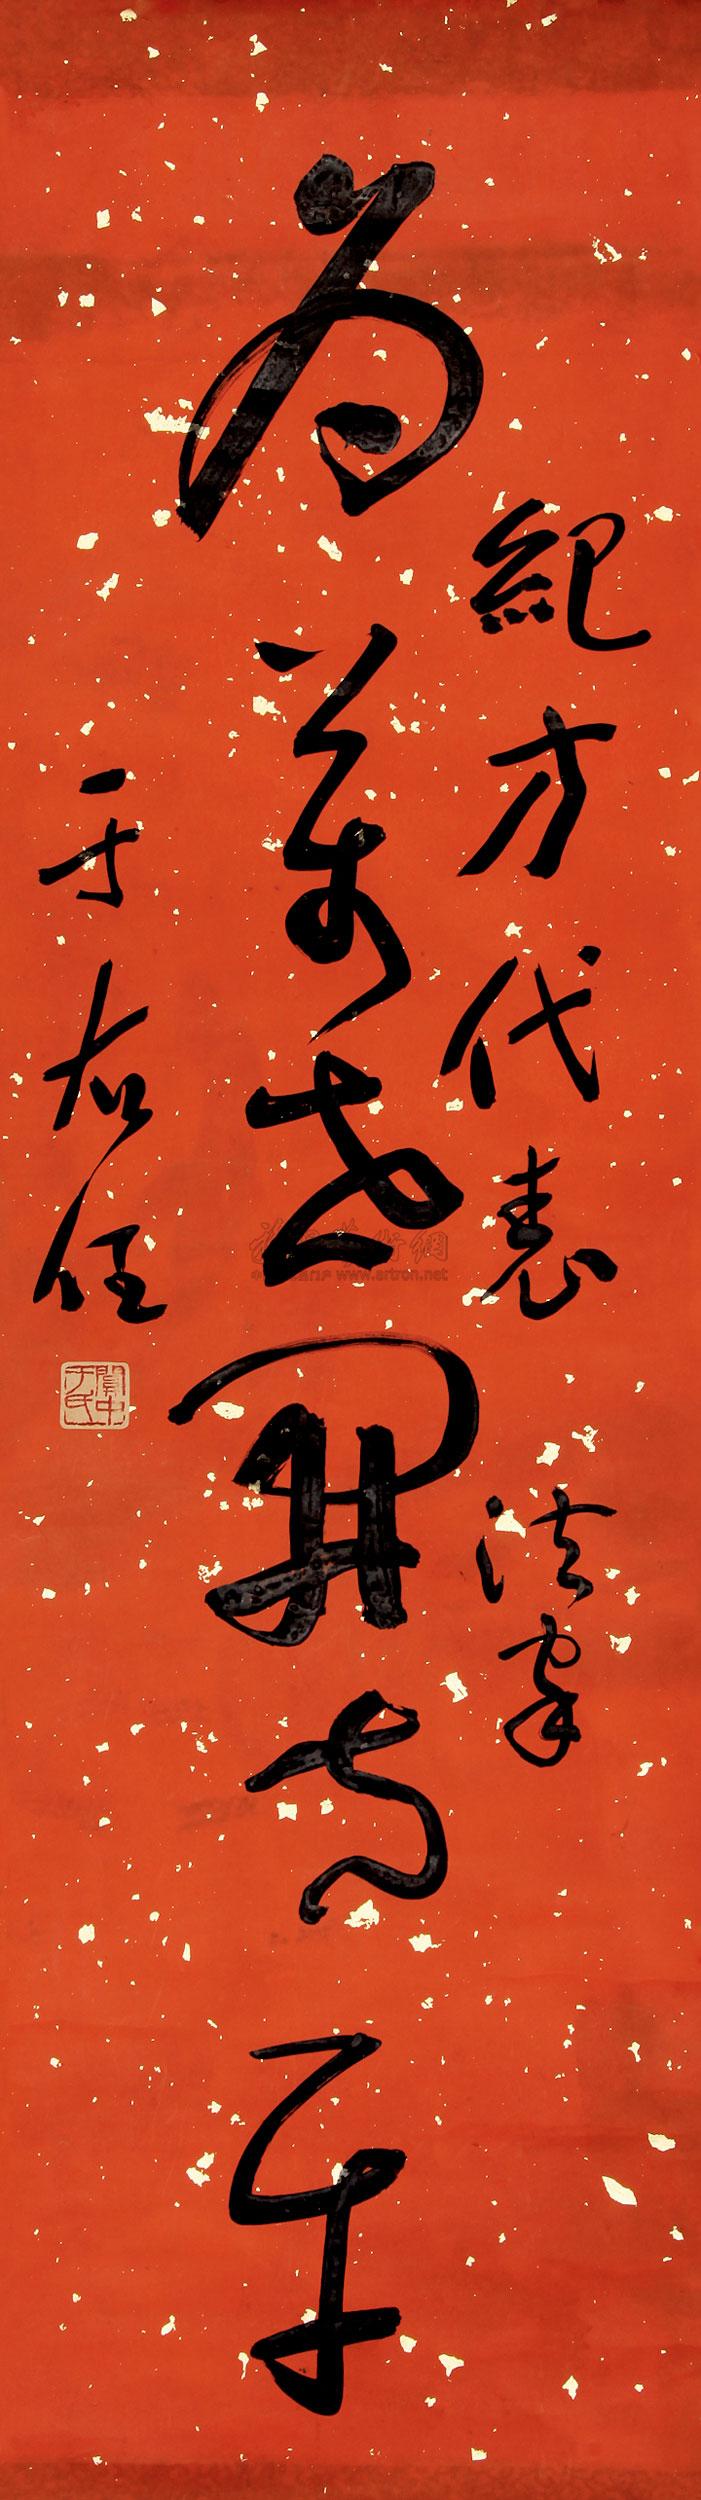 紀方代表 法家
為萬世開太平
于右任
關中于氏
雅昌藝術網
www.artron.net